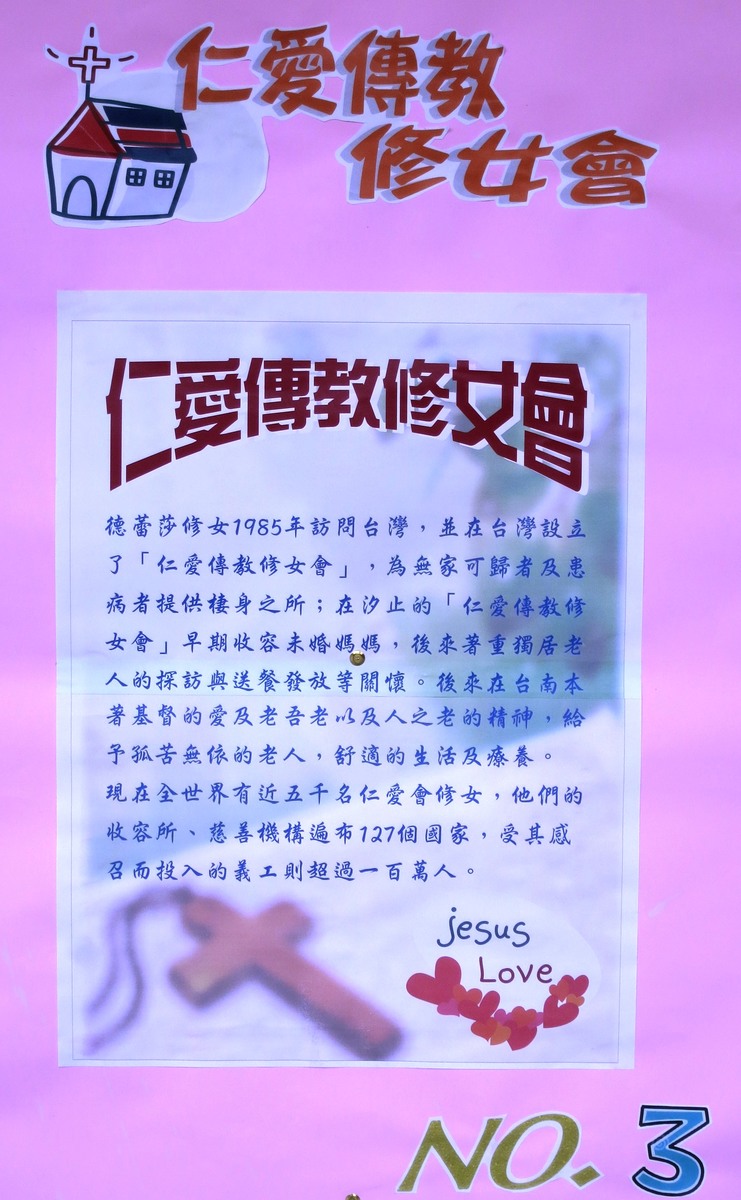 仁愛傳教
修女會
仁愛傳教修女會
德蕾莎修女1985年訪問台灣，並在台灣設立
了「仁愛傳教修女會」，為無家可歸者及患
病者提供棲身之所；在汐止的「仁愛傳教修
女會」早期收容未婚媽媽，後來著重獨居老
人的探訪與送餐發放等關懷。後來在台南本
著基督的愛及老吾老以及人之老的精神，給
予孤苦無依的老人，舒適的生活及療養。
現在全世界有近五千名仁愛會修女，他們的
收容所、慈善機構遍布127個國家，受其感
召而投入的義工則超過一百萬人。
jesus
Love
NO. 3